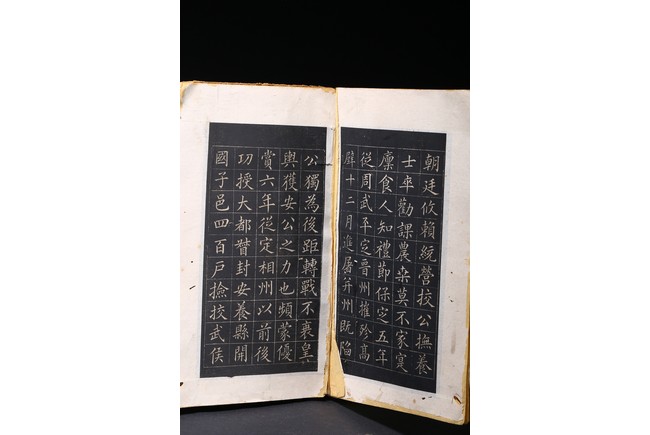 朝廷攸賴統營校公撫養
士卒勸課農桒莫不家寔
廪食人知禮節保定五年
從周武平定晋州摧殄高
壁十二月進屠并州既陥
公獨為後距轉戰不衰皇
輿獲安公之力也頻蒙優
賞六年從定相州以前後
功授大都督封安養縣開
國子邑四百戶撿挍武侯